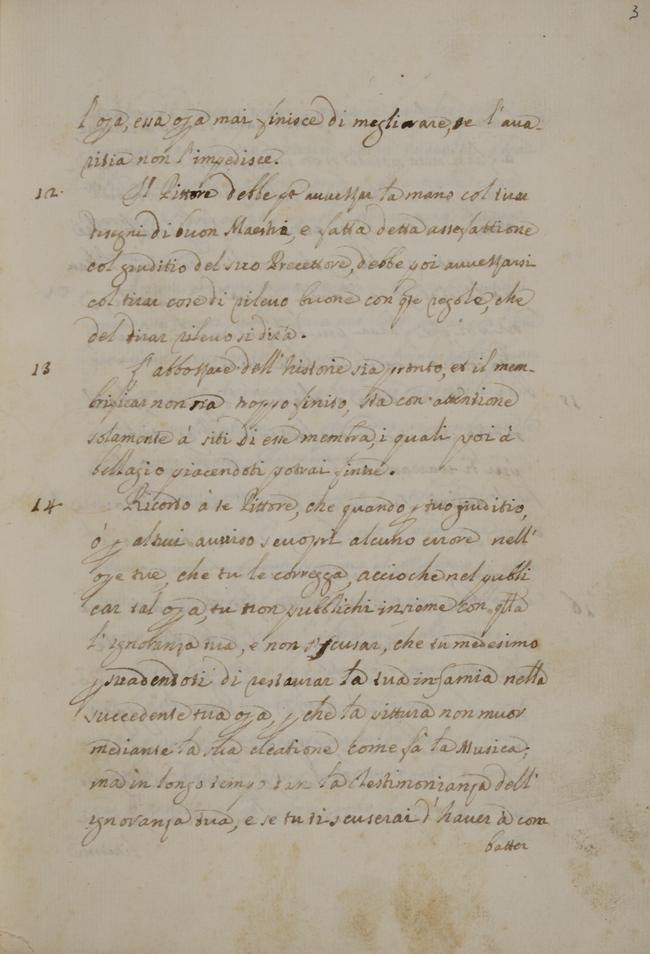 3
l'opa, essa opa mai finisce di megliorare, se l'ava-
ritia non l'impedisce.
12. Il Pittore debbe pa avvezzar la mano col tirar
disegni di buon Maestri, e fatta detta assefattione
col giuditio del suo Precettore, debbe poi avvezzarsi
col tirar cose di rilievo buone con qte regole, che
del tirar rilievo si dirà.
13 L'abbozzare dell'historie sia pronto, et il mem-
brificar non sia troppo finito, sta con attentione
solamente à siti di esse membra, i quali poi à
bellagio piacendoti potrai finire.
14 Ricordo à te Pittore, che quando p tuo giuditio,
ó p altrui avviso scuopri alcuno errore nell'
ope tue, che tu le corregga, accioche nel publi
car tal opa, tu non pubblichi insieme con qlla
l'ignoranza tua, e non ti scusar, che tu medesimo
psuadendoti di restaurar la tua infamia nella
succedente tua opa, p che la pittura non muor
mediante la sua creatione come fà la Musica;
mà in longo tempo darà testimonianza dell'
ignoranza tua, e se tu ti scuserai d'haver à com
batter